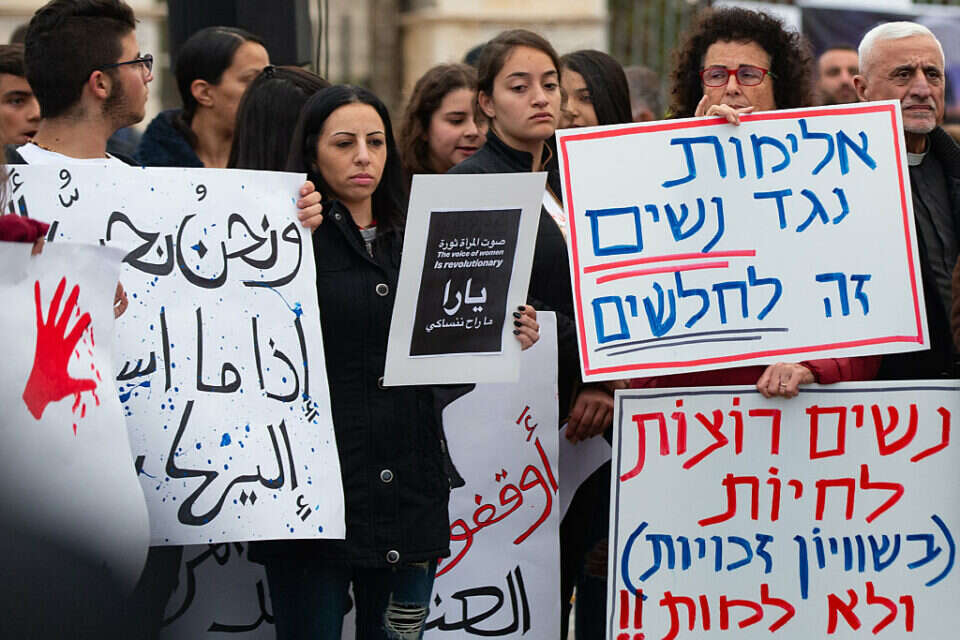 ونحنُ نحبُّ
إذا ما
إليها
صوت المرأة ثورة
The voice of women
Is revolutionary
يارا
ما راح ننساكي
أوقفوا
אלימות
נגד נשים
זה לחלשים
נשים רוצות
לחיות
(בשוויון זכויות)
ולא למות!!